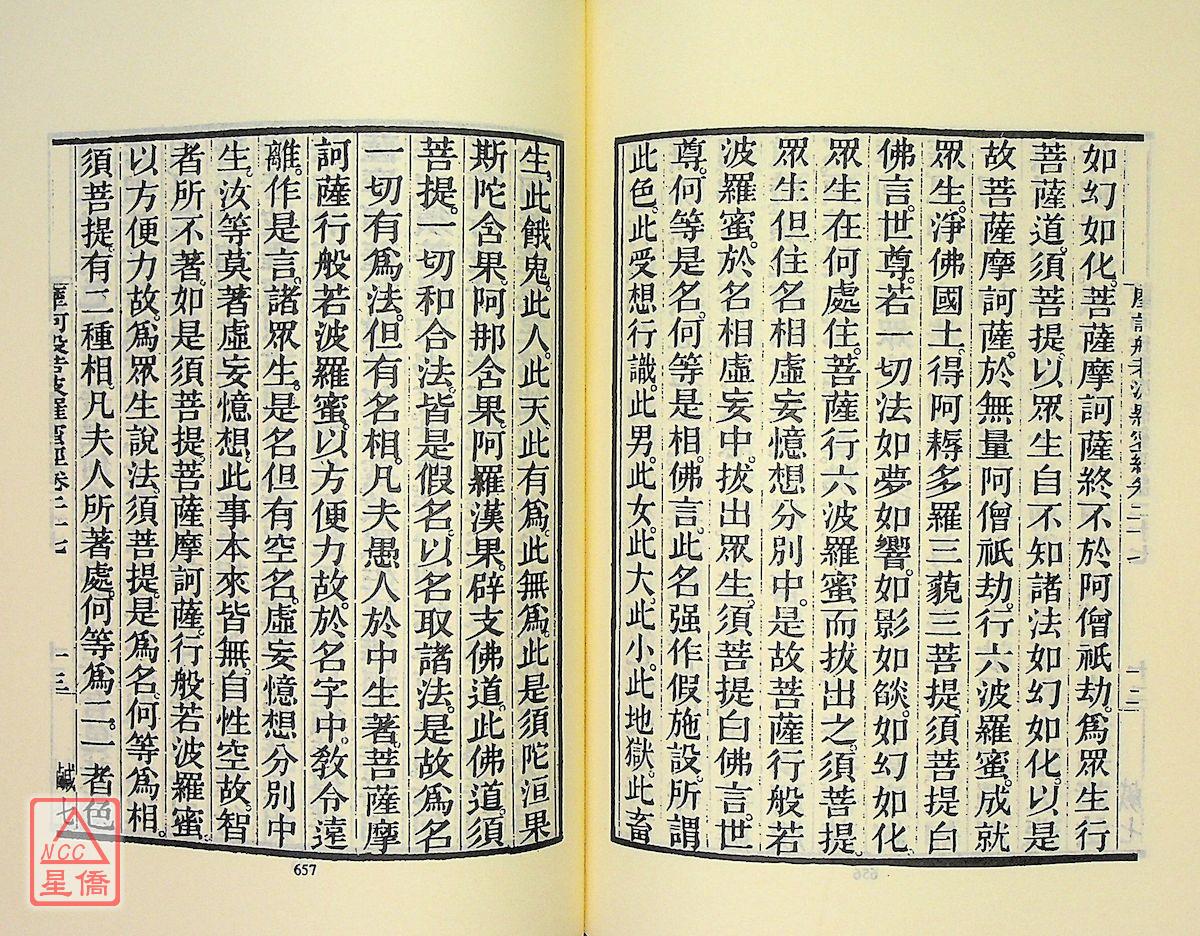 摩訶般若波羅蜜經卷二十七 十二
如幻如化。菩薩摩訶薩終不於阿僧祇劫。爲眾生行
菩薩道。須菩提。以眾生自不知諸法如幻如化。以是
故菩薩摩訶薩。於無量阿僧祇劫。行六波羅蜜。成就
眾生。淨佛國土。得阿耨多羅三藐三菩提。須菩提白
佛言。世尊。若一切法如夢如響。如影如燄。如幻如化。
眾生在何處住。菩薩行六波羅蜜而拔出之。須菩提。
眾生但住名相虛妄憶想分別中。是故菩薩行般若
波羅蜜。於名相虛妄中。拔出眾生。須菩提白佛言。世
尊。何等是名。何等是相。佛言。此名强作假施設。所謂
此色。此受想行識。此男。此女。此大。此小。此地獄。此畜
生。此餓鬼。此人。此天。此有爲。此無爲。此是須陀洹果
斯陀含果。阿那含果。阿羅漢果。辟支佛道。此佛道。須
菩提。一切和合法。皆是假名。以名取諸法。是故爲名
一切有爲法。但有名相。凡夫愚人於中生著。菩薩摩
訶薩行般若波羅蜜。以方便力故。於名字中。教令遠
離。作是言。諸眾生。是名但有空名。虛妄憶想分別中
生。汝等莫著虛妄憶想。此事本來皆無。自性空故。智
者所不著。如是須菩提。菩薩摩訶薩。行般若波羅蜜。
以方便力故。爲眾生說法。須菩提。是爲名。何等爲相。
須菩提。有二種相。凡夫人所著處。何等爲二。一者色
摩訶般若波羅蜜經卷二十七 十三 鹹七
657
NCC
星僑